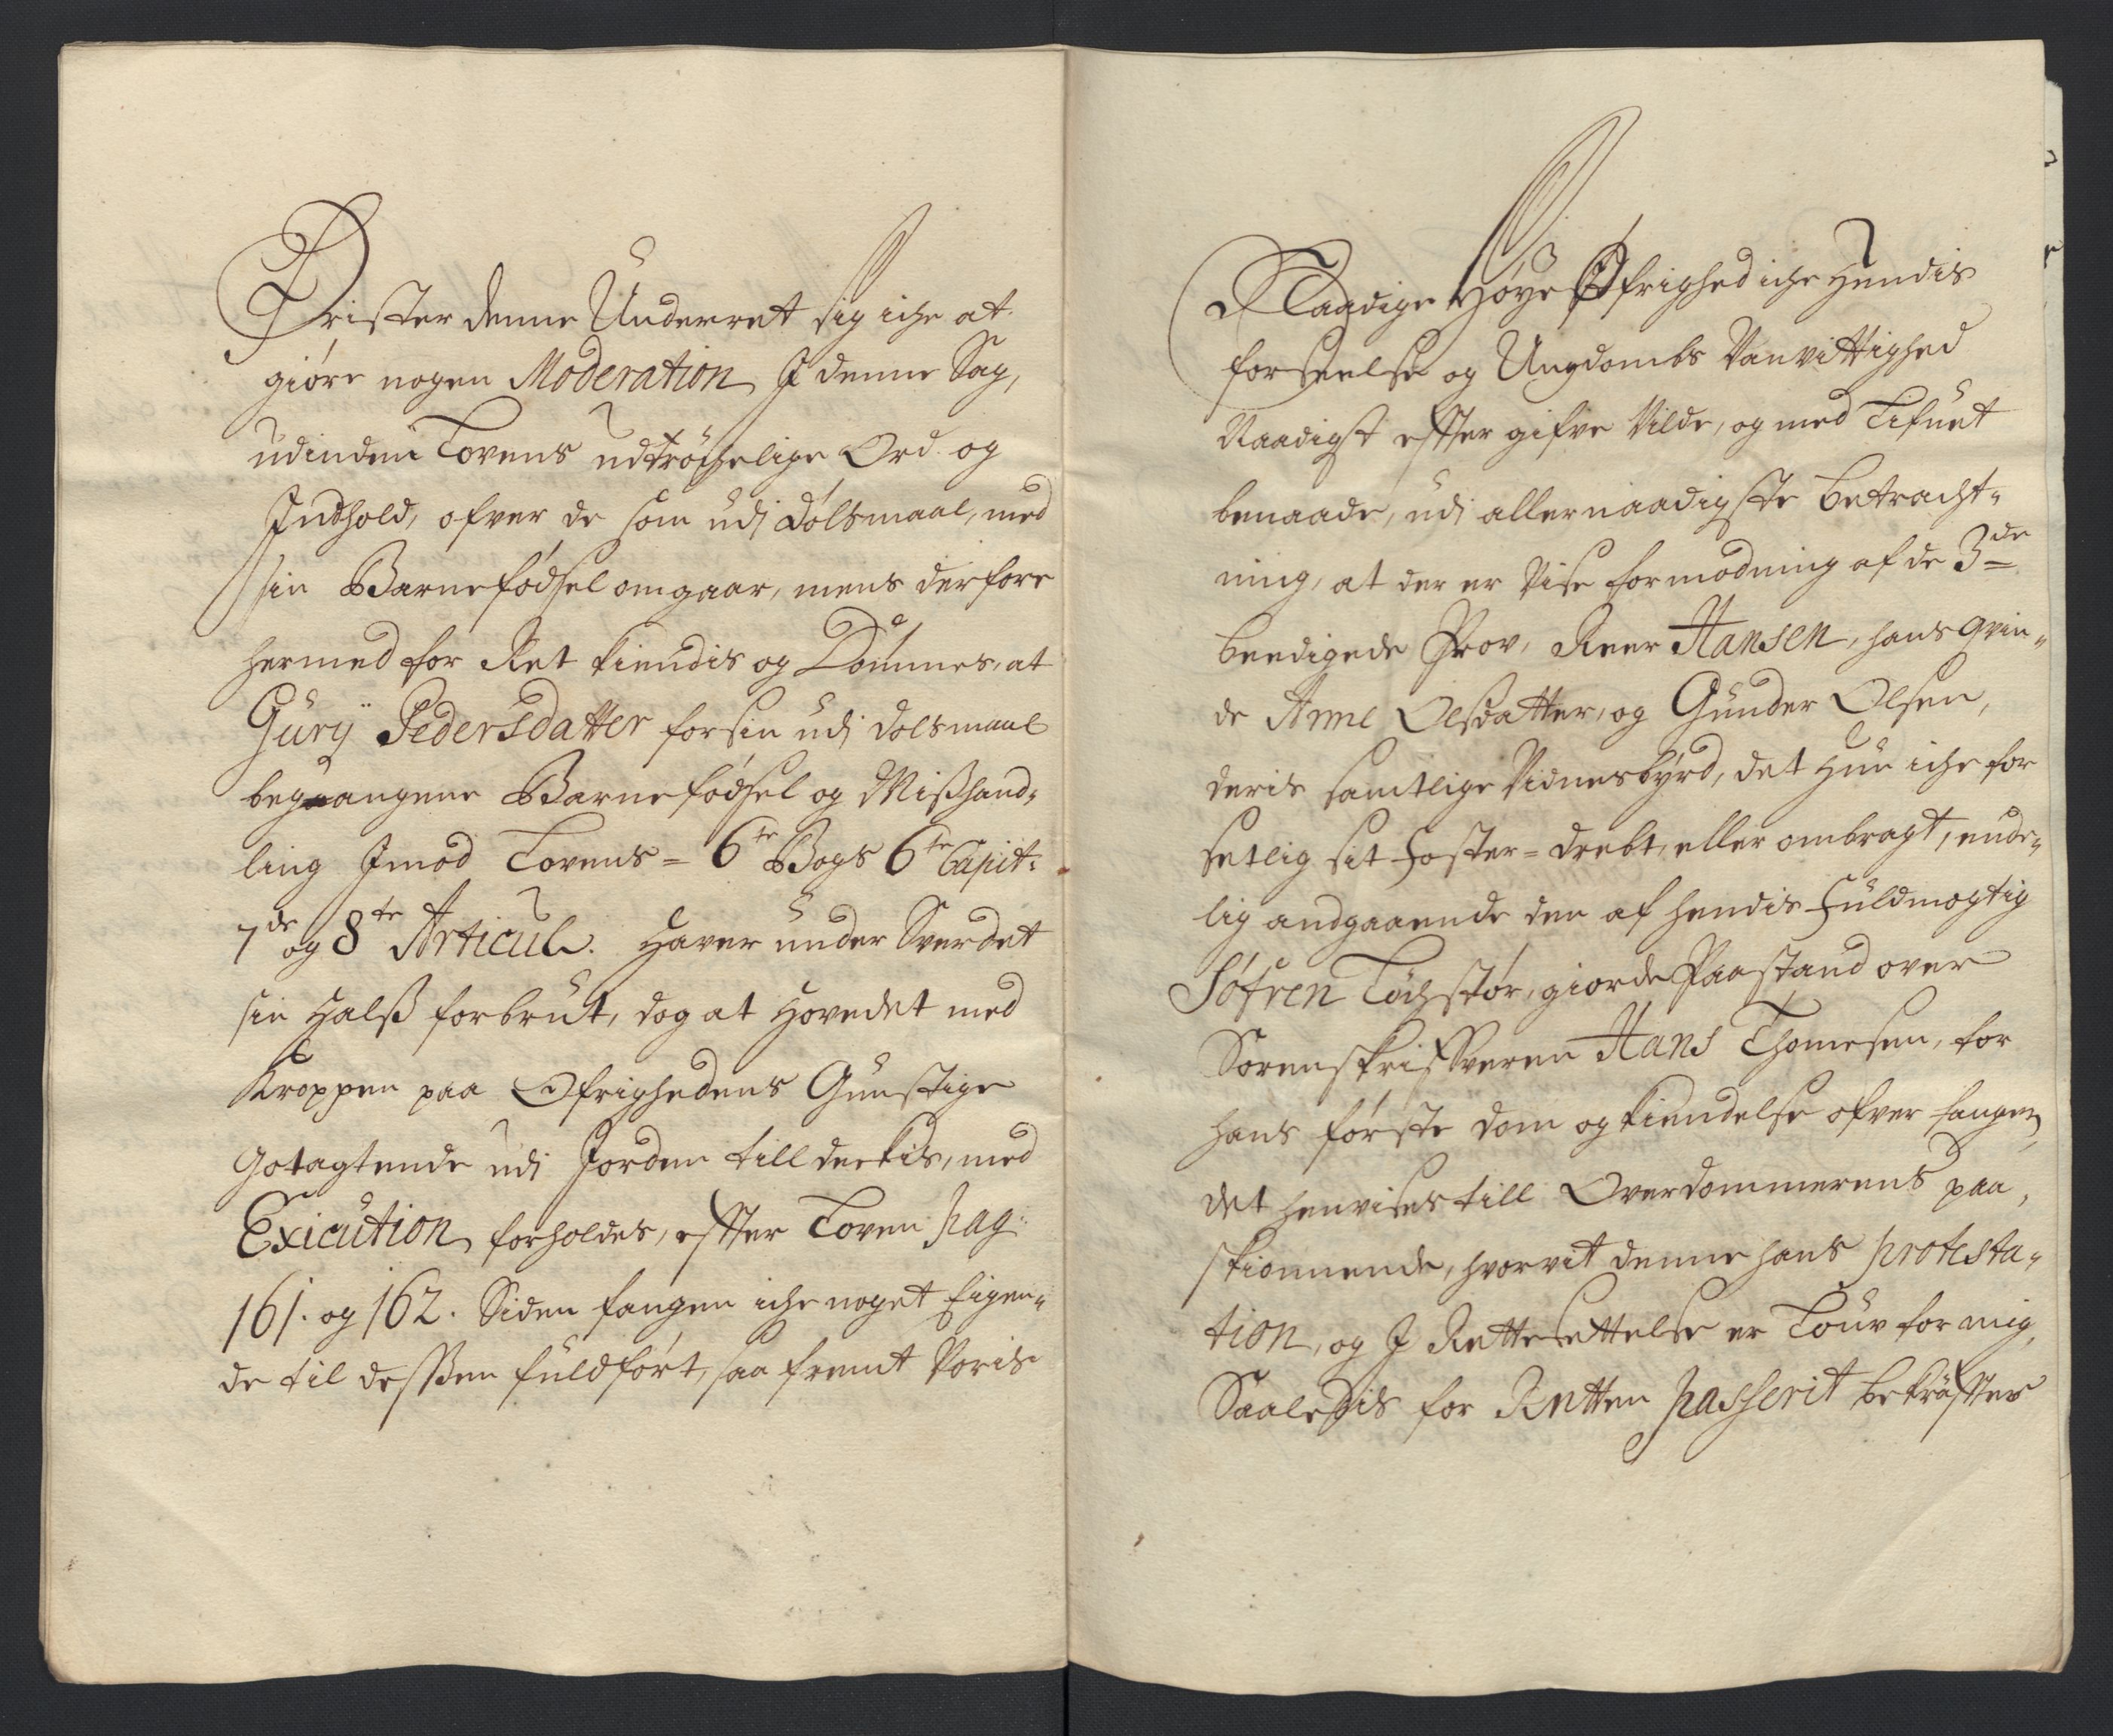 Drister denne Underret sig iche at
giøre nogen Moderation I denne Sag,
udinden Lovens udtröchelige Ord og
Indhold, ofver de som udj Dølsmaal, med
sin Barnefødsel omgaar, mens derfore
hermed for Ret kiendis og Dømmes, at
Gury Pedersdatter for sin udj Dolsmaal
begangene Barnefødsel og Mishand„
ling Imod Lovens = 6te Bogs 6te Capit:
7de og 8te Articul. Haver under Sverdet
sin Halß forbrut, dog at Hovedet med
Kroppen paa Øfrighedens Gunstige
Gotagtende udj Jorden till destes, med
Exicution forholdes, effter Loven pag:
161. og 162. Siden fangen iche noget Eigen„
de til desßen fuldført, saa fremt Voris
Naadige Høye Øfrighed iche Hendis
forseelse og Ungdombs Vanvittighed
Naadigst effter gifve Vilde, og med Lifvet
benaade, udi allernaadigste betracht„
ning, at der er Vise formodning af de 3de
beedigede Prov, Reer Hansen, hans qvin„
de Anne Olsdatter, og Gunder Olsen,
deris samtlige Vidnesbyrd, det Hun iche for
setlig sit Foster = drebt, eller ombragt, ende„
lig andgaaende den af hendis Fuldmegtig
Søfren Løchstør, giorde Paastand over
Sorenskrifveren Hans Thomesen, for
hans første dom og kiendelse ofver fangen,
det henvises till Overdommerens paa,
skiønnende, hvorvit denne hans protesta„
tion, og I Rettesettelse er Louv for mig,
Saaledis for Retten passerit bekräffter